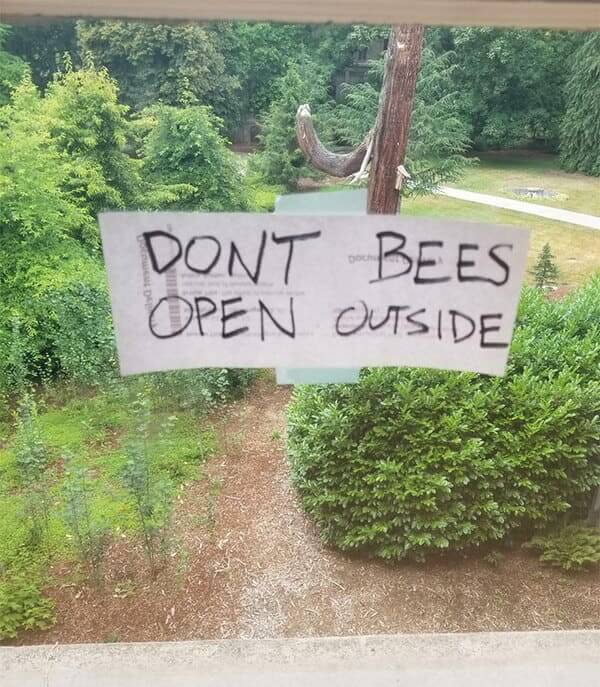 DONT BEES
OPEN OUTSIDE